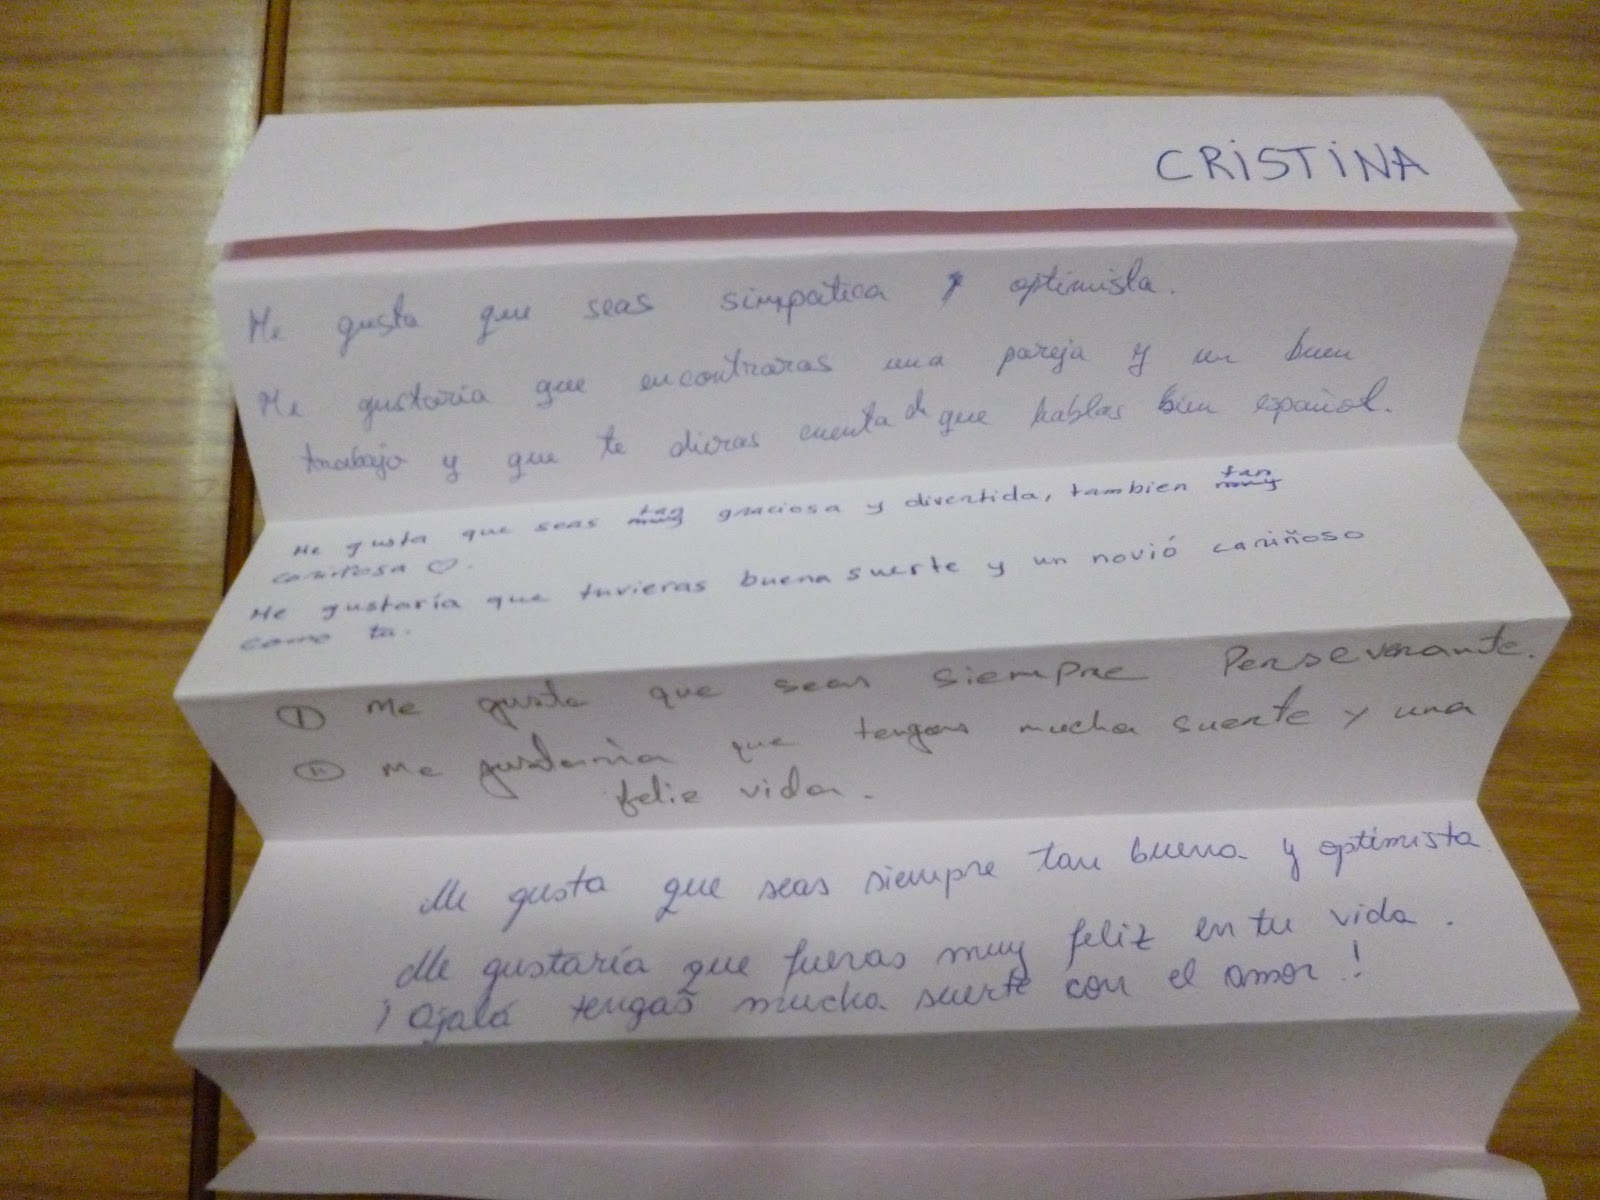 CRISTINA
Me gusta que seas simpática y optimista.
Me gustaría que encontraras una pareja y un buen
trabajo y que te dieras cuenta de que hablas bien español.
Me gusta que seas tan muy graciosa y divertida, tambien tan muy
cariñosa ♡.
Me gustaría que tuvieras buena suerte y un novió cariñoso
como tu.
I Me gusta que seas siempre Perseverante.
II Me gustaria que tengas mucha suerte y una
felie vida.
Me gusta que seas siempre tan buena y optimista
Me gustaría que fueras muy feliz en tu vida.
¡Ojalá tengas mucha suerte con el amor!